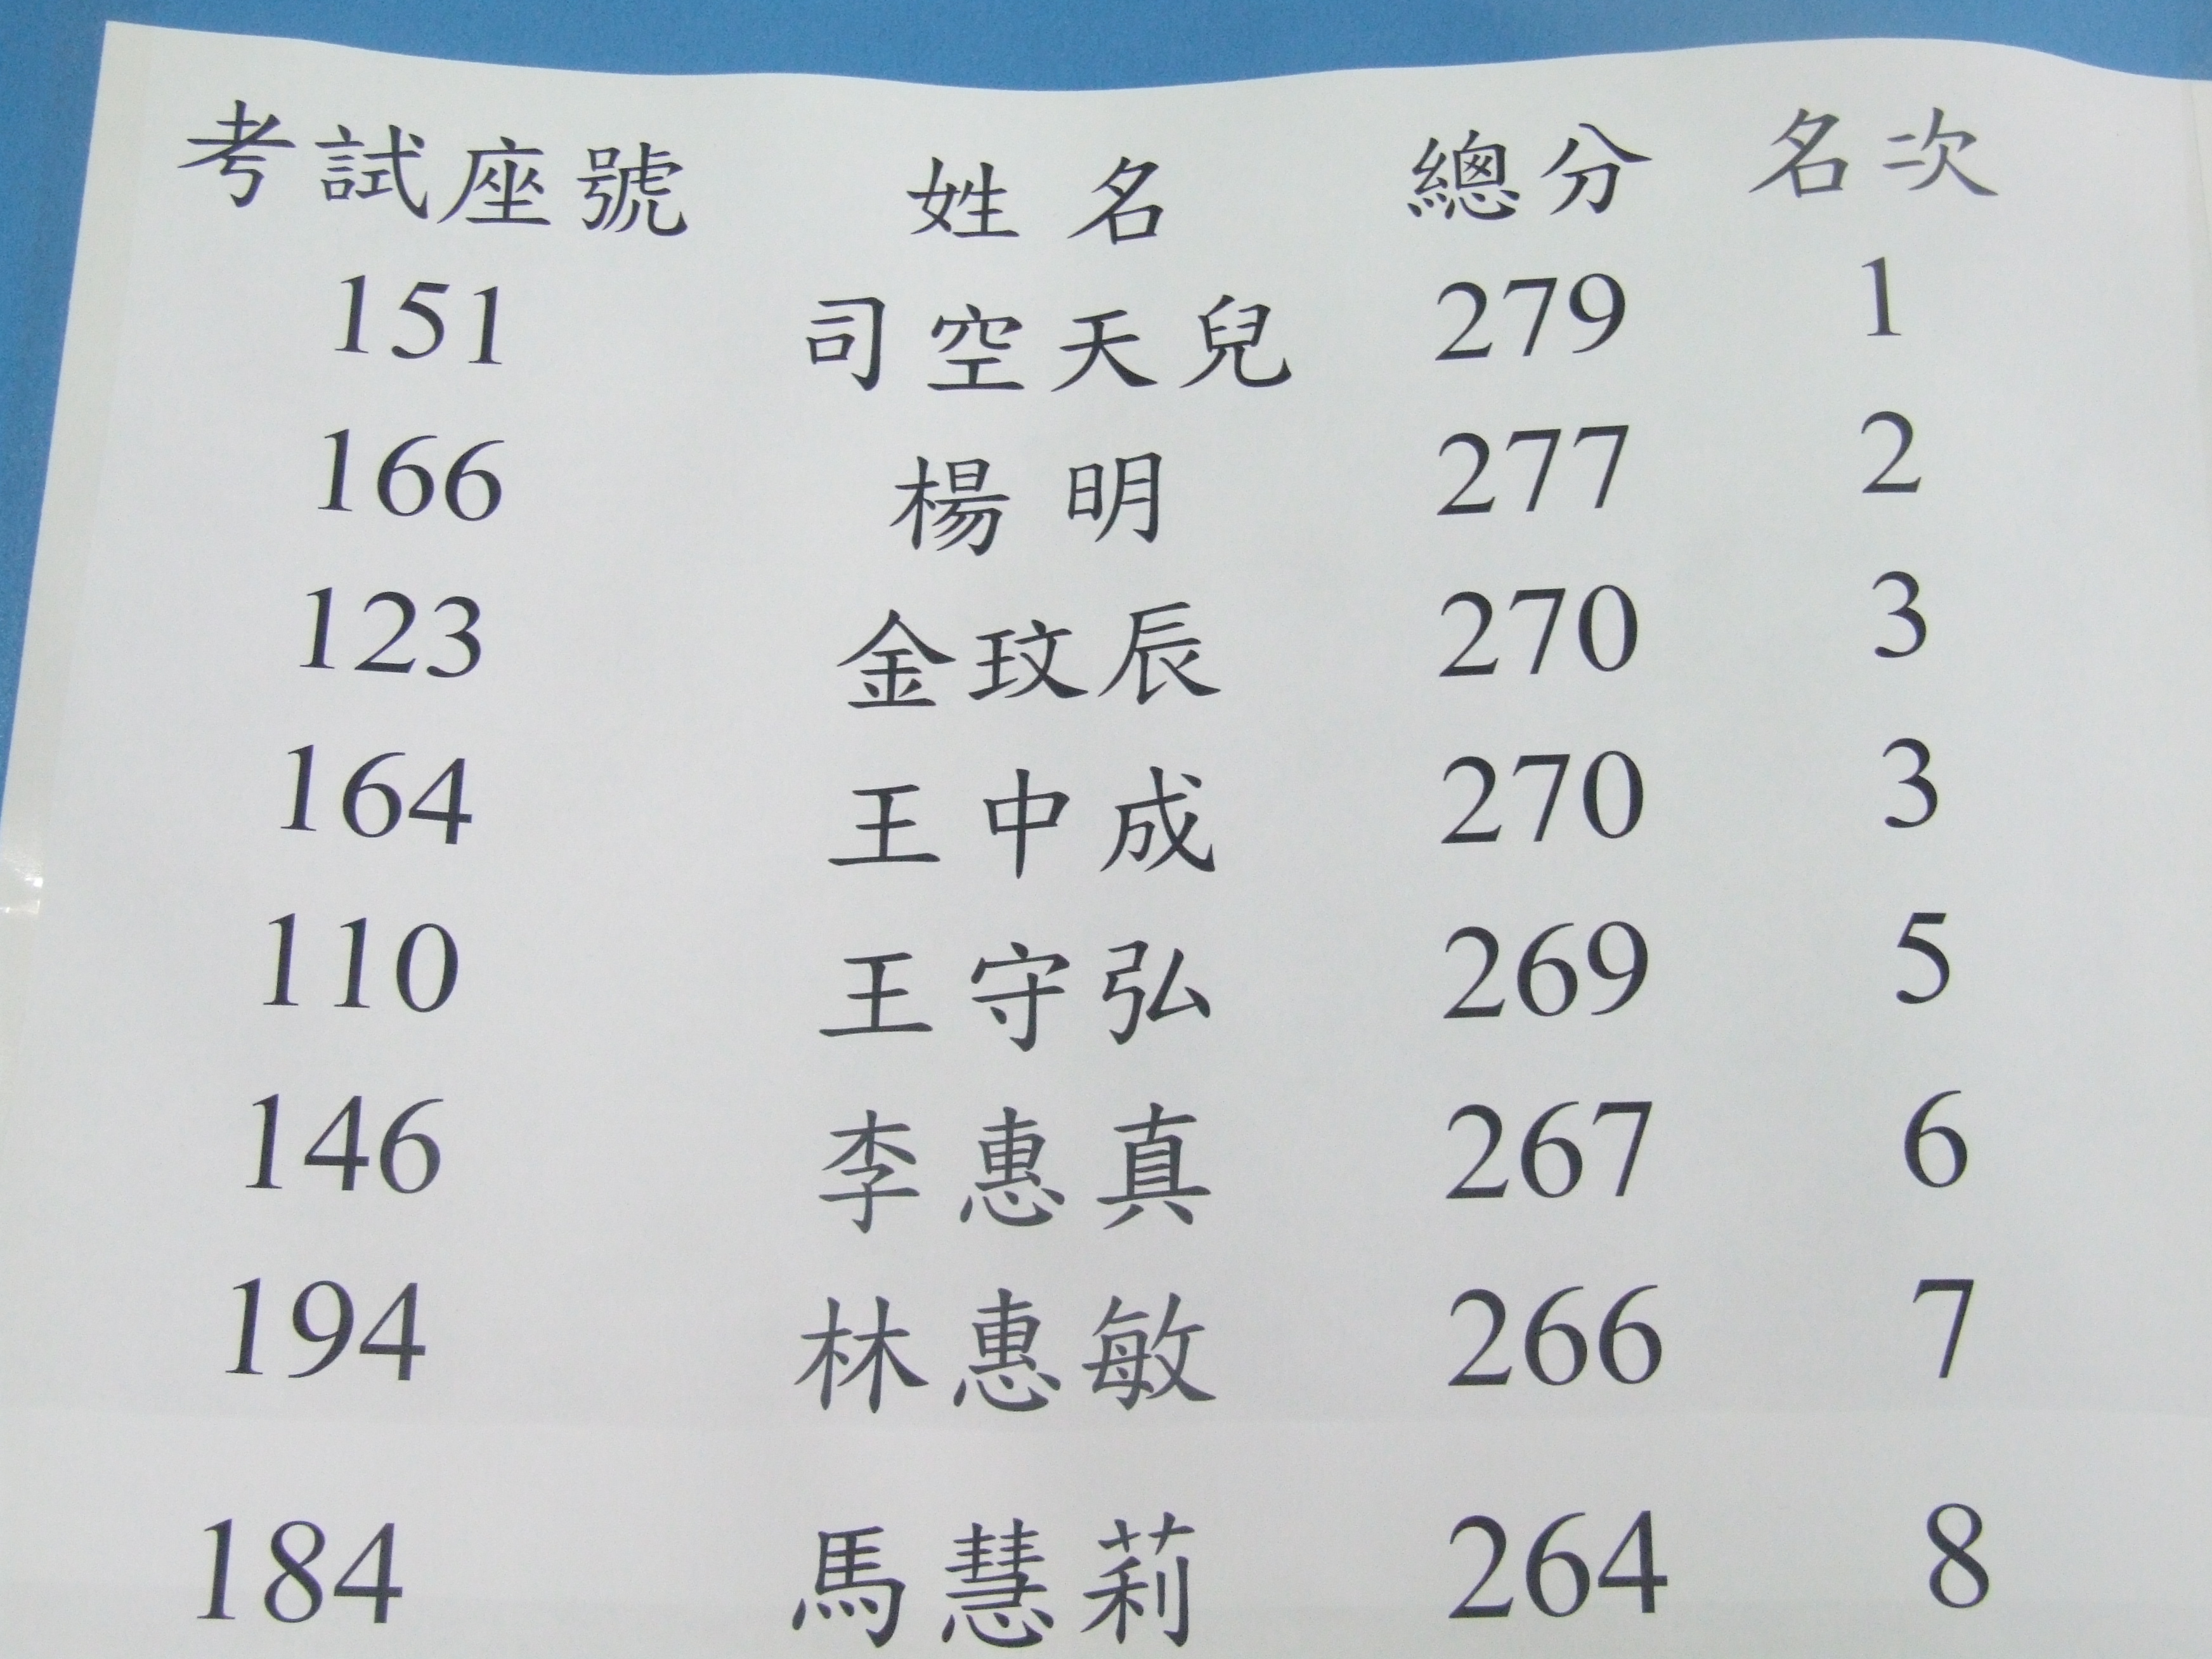 考試座號 姓名 總分 名次
151 司空天兒 279 1
166 楊明 277 2
123 金玟辰 270 3
164 王中成 270 3
110 王守弘 269 5
146 李惠真 267 6
194 林惠敏 266 7
184 馬慧莉 264 8